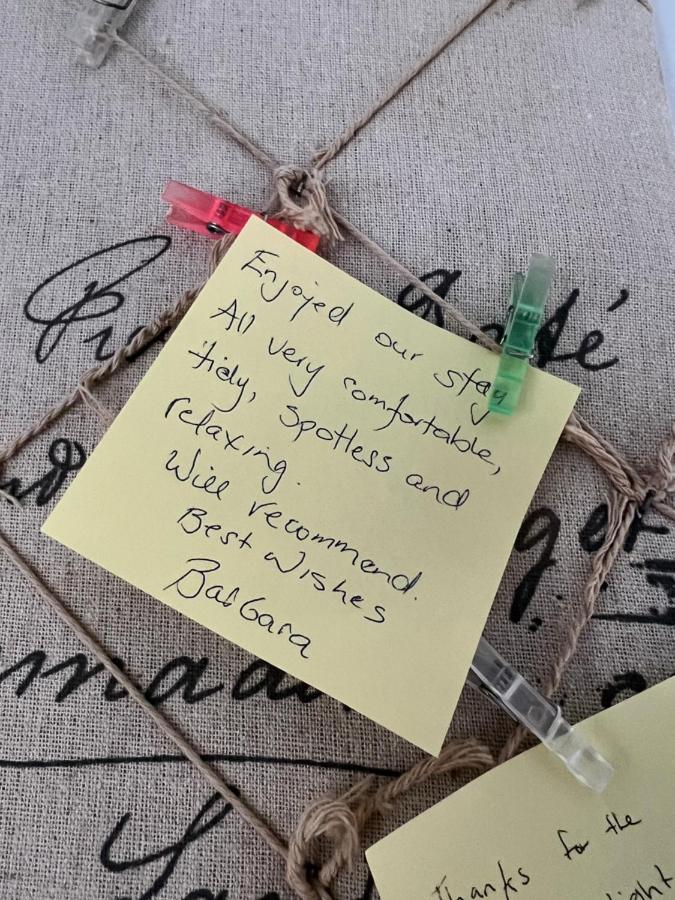 Enjoyed our stay
All very comfortable,
tidy, spotless and
relaxing.
Will recommend.
Best Wishes
Barbara
Thanks for the